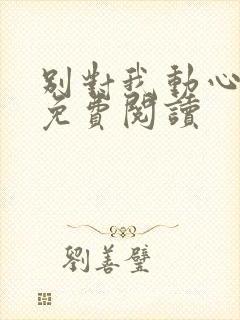 別對我動心
免費閱讀
劉善璧